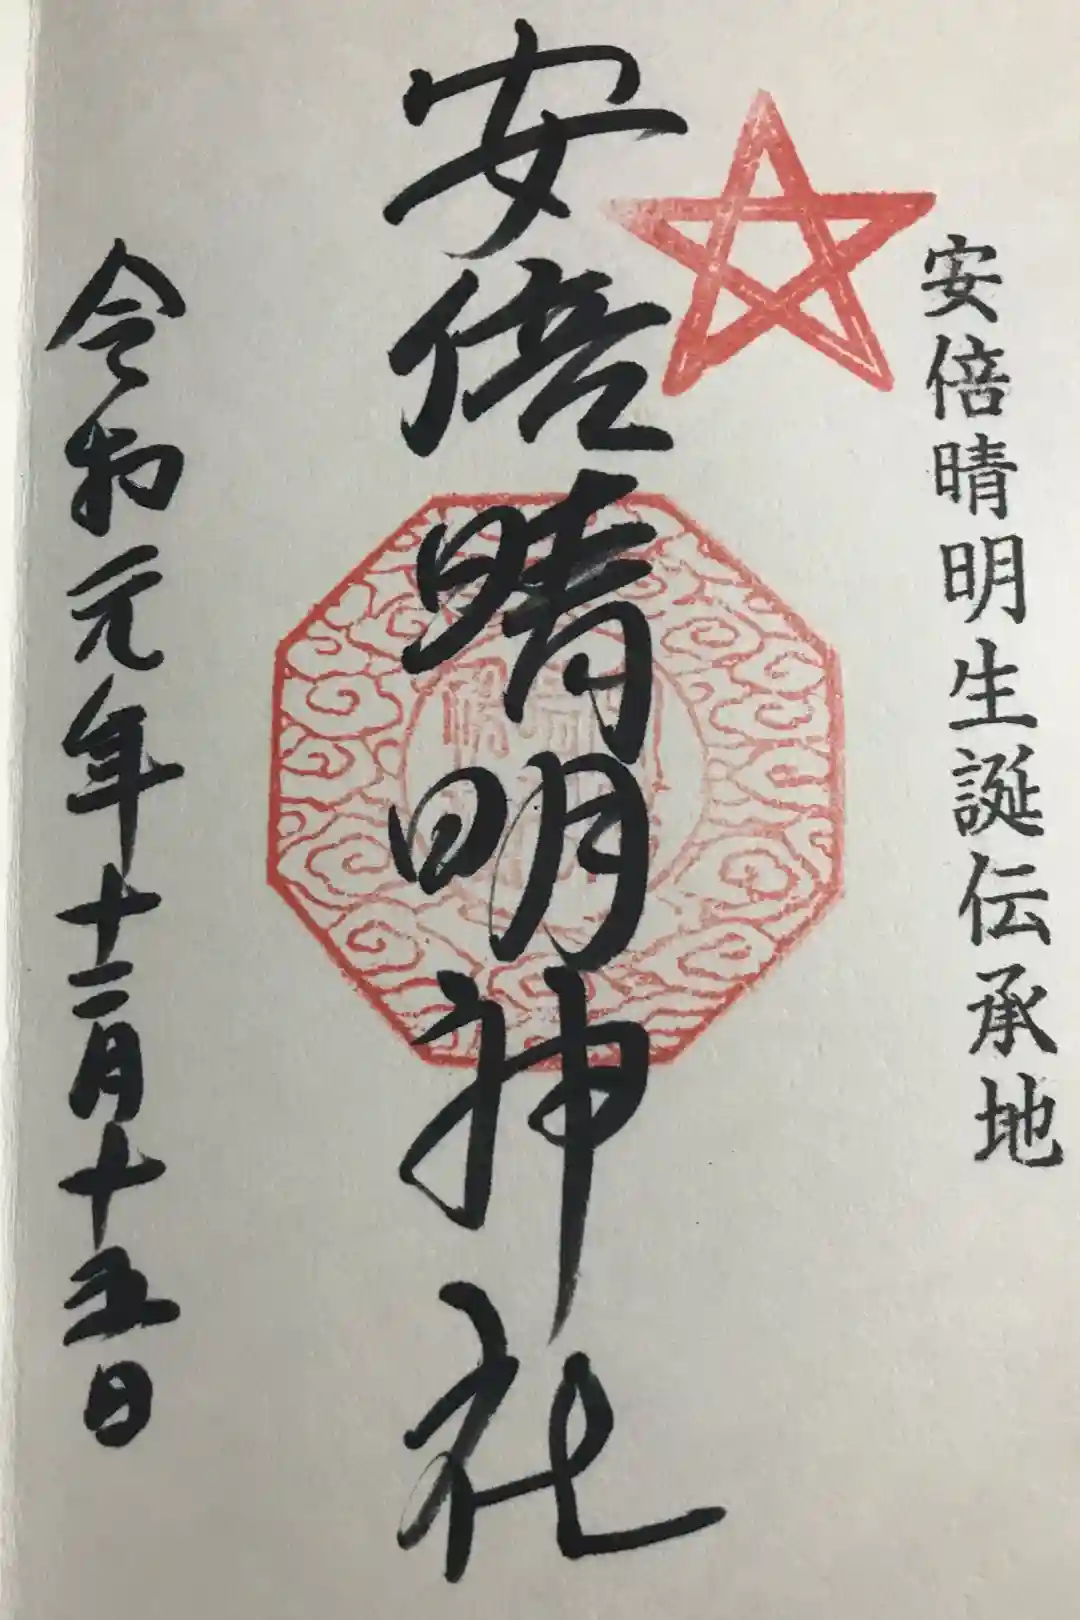 安倍晴明生誕伝承地
安倍晴明神社
令和元年十二月十五日